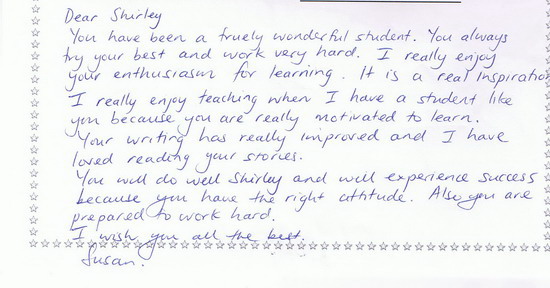 Dear Shirley
You have been a truely wonderful student. You always
try your best and work very hard. I really enjoy
your enthusiasm for learning. It is a real inspiration
I really enjoy teaching when I have a student like
you because you are really motivated to learn.
Your writing has really improved and I have
loved reading your stories.
You will do well Shirley and will experience success
because you have the right attitude. Also you are
prepared to work hard.
I wish you all the best.
Susan.